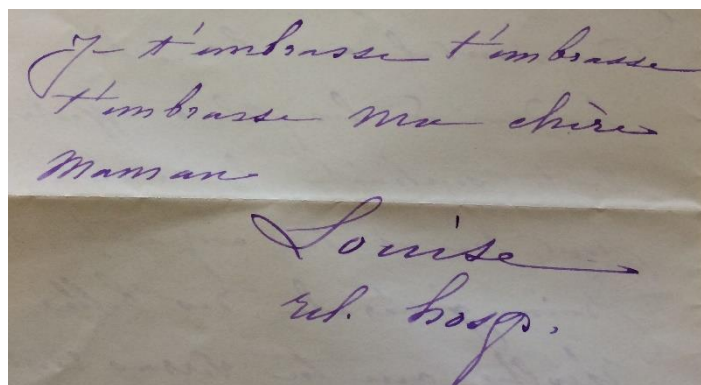 Je t'embrasse t'embrasse
t'embrasse ma chère
Maman
Louise
rel. hosp.